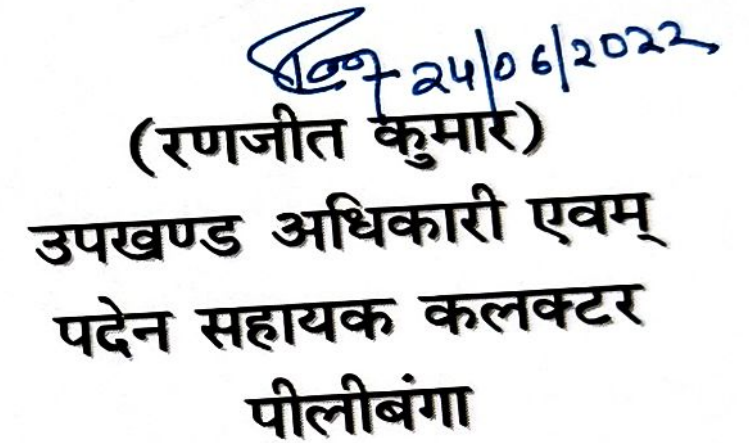 24/06/2022
(रणजीत कुमार)
उपखण्ड अधिकारी एवम्
पदेन सहायक कलक्टर
पीलीबंगा